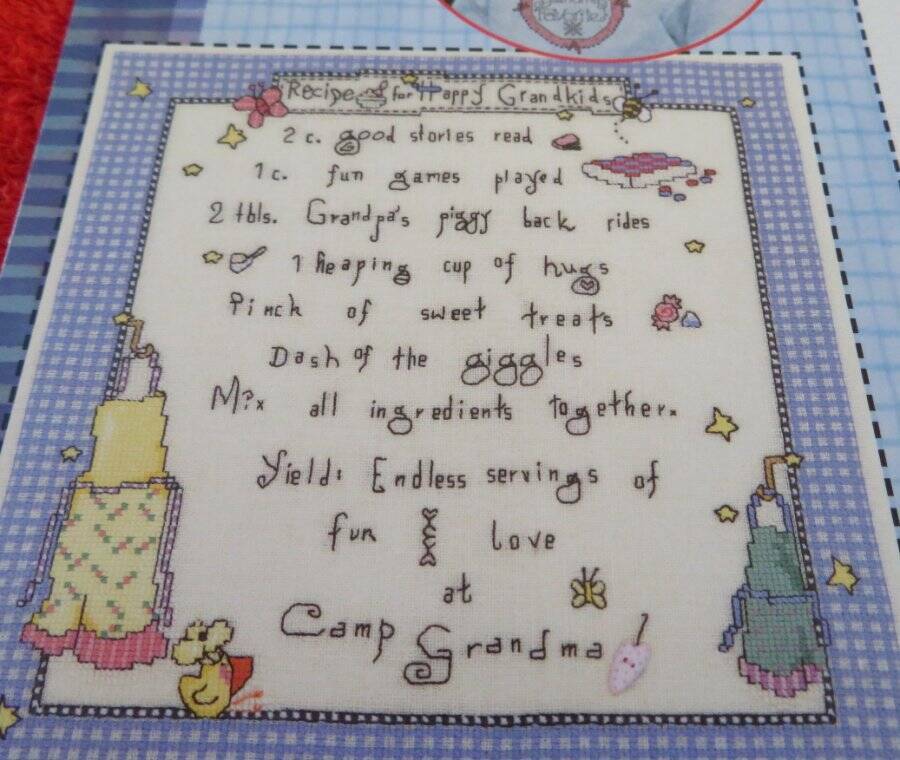 Favorites
Recipe for Happy Grandkids
2 c. good stories read
1 c. fun games played
2 tbls. Grandpa's piggy back rides
1 heaping cup of hugs
Pinch of sweet treats
Dash of the giggles
Mix all ingredients together.
Yield: Endless servings of
fun & love
at
Camp Grandma